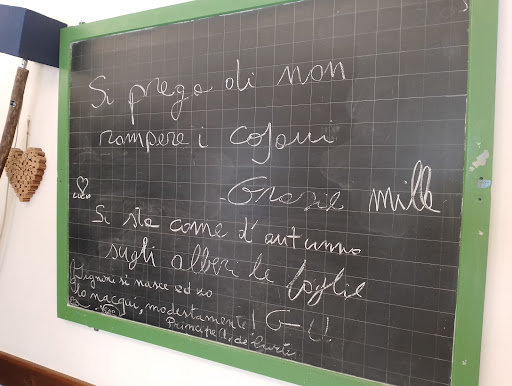 Si prega di non
rompere i cojoni
Grazie mille
Si sta come d'autunno
sugli alberi le foglie
Signori si nasce ed io
lo nacqui, modestamente!
Principe A. de Curtis